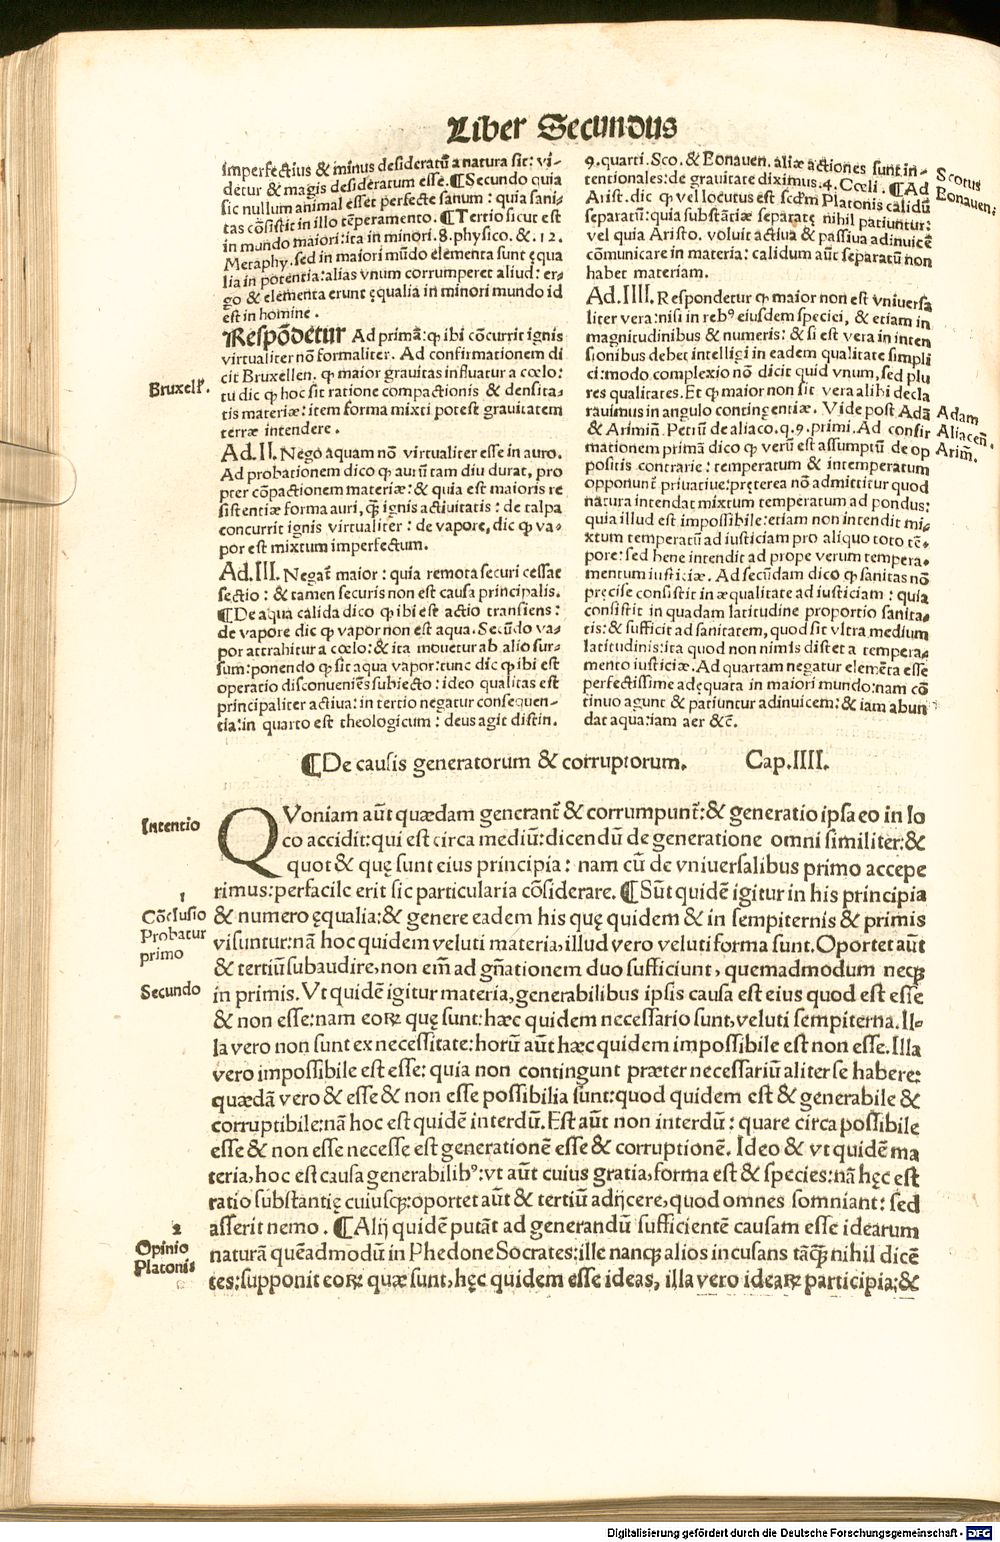 Liber Secundus
imperfectius & minus desideratū a natura sit: vi-
detur & magis desideratum esse. ¶Secundo quia
sic nullum animal esset perfecte sanum: quia sani-
tas cōsistit in illo tēperamento. ¶Tertio sicut est
in mundo maiori: ita in minori. 8. physico. &. 12.
Metaphy. sed in maiori mūdo elementa sunt ęqua
lia in potentia: alias vnum corrumperet aliud: er-
go & elementa erunt ęqualia in minori mundo id
est in homine.
Respōdetur Ad primā: ꝙ ibi cōcurrit ignis
virtualiter nō formaliter. Ad confirmationem di
cit Bruxellen. ꝙ maior grauitas influatur a cœlo:
tu dic ꝙ hoc sit ratione compactionis & densita-
tis materiæ: item forma mixti potest grauitatem
terræ intendere.
Ad. II. Nego aquam nō virtualiter esse in auro.
Ad probationem dico ꝙ aurū tam diu durat, pro
pter cōpactionem materiæ: & quia est maioris re
sistentiæ forma auri, ꝙ̃ ignis actiuitatis: de talpa
concurrit ignis virtualiter: de vapore, dic ꝙ va-
por est mixtum imperfectum.
Ad. III. Negat̄ maior: quia remota securi cessat
sectio: & tamen securis non est causa principalis.
¶De aqua calida dico ꝙ ibi est actio transiens:
de vapore dic ꝙ vapor non est aqua. Secūdo va-
por attrahitur a cœlo: & ita mouetur ab alio sur-
sum: ponendo ꝙ sit aqua vapor: tunc dic ꝙ ibi est
operatio disconueniēs subiecto: ideo qualitas est
principaliter actiua: in tertio negatur consequen-
tia: in quarto est theologicum: deus agit distin.
Bruxell'.
9. quarti. Sco. & Bonauen. aliæ actiones sunt in-
tentionales: de grauitate diximus. 4. Cœli. ¶Ad
Arist. dic ꝙ vel locutus est scd'm Platonis calidū
separatū: quia substātiæ separatę nihil patiuntur:
vel quia Aristo. voluit actiua & passiua adinuicē
cōmunicare in materia: calidum aūt separatū non
habet materiam.
Ad. IIII. Respondetur ꝙ maior non est vniuersa
liter vera: nisi in reb⁹ eiusdem speciei, & etiam in
magnitudinibus & numeris: & si est vera in inten
sionibus debet intelligi in eadem qualitate simpli
ci: modo complexio nō dicit quid vnum, sed plu
res qualitates. Et ꝙ maior non sit vera alibi decla
rauimus in angulo contingentiæ. Vide post Adā
& Arimiñ. Petrū de aliaco. q. 9. primi. Ad confir
mationem primā dico ꝙ verū est assumptū de op
positis contrarie: temperatum & intemperatum
opponunt̄ priuatiue: pręterea nō admittitur quod
natura intendat mixtum temperatum ad pondus:
quia illud est impossibile: etiam non intendit mi-
xtum temperatū ad iusticiam pro aliquo toto tē-
pore: sed bene intendit ad prope verum tempera-
mentum iusticiæ. Ad secūdam dico ꝙ sanitas nō
pręcise consistit in æqualitate ad iusticiam: quia
consistit in quadam latitudine proportio sanita-
tis: & sufficit ad sanitatem, quod sit vltra medium
latitudinis: ita quod non nimis distet a tempera-
mento iusticiæ. Ad quartam negatur elemēta esse
perfectissime adęquata in maiori mundo: nam cō
tinuo agunt & patiuntur adinuicem: & iam abun
dat aqua: iam aer &c̄.
Scotus
Bonauen:
Adam
Aliaceñ.
Arim̄.
¶De causis generatorum & corruptorum. Cap. IIII.
QVoniam aūt quædam generant̄ & corrumpunt̄: & generatio ipsa eo in lo
co accidit: qui est circa mediū: dicendū de generatione omni similiter: &
quot & quę sunt eius principia: nam cū de vniuersalibus primo accepe
rimus: perfacile erit sic particularia cōsiderare. ¶Sūt quidē igitur in his principia
& numero ęqualia: & genere eadem his quę quidem & in sempiternis & primis
visuntur: nā hoc quidem veluti materia, illud vero veluti forma sunt. Oportet aūt
& tertiū subaudire, non em̄ ad gñationem duo sufficiunt, quemadmodum neqꝫ
in primis. Vt quidē igitur materia, generabilibus ipsis causa est eius quod est esse
& non esse: nam eoꝝ quę sunt: hæc quidem necessario sunt, veluti sempiterna. Il-
la vero non sunt ex necessitate: horū aūt hæc quidem impossibile est non esse. Illa
vero impossibile est esse: quia non contingunt præter necessariū aliter se habere:
quædā vero & esse & non esse possibilia sunt: quod quidem est & generabile &
corruptibile: nā hoc est quidē interdū. Est aūt non interdū: quare circa possibile
esse & non esse necesse est generationē esse & corruptionē. Ideo & vt quidē ma
teria, hoc est causa generabilib⁹: vt aūt cuius gratia, forma est & species: nā hęc est
ratio substantię cuiusqꝫ: oportet aūt & tertiū adijcere, quod omnes somniant: sed
asserit nemo. ¶Alij quidē putāt ad generandū sufficientē causam esse idearum
naturā quēadmodū in Phedone Socrates: ille nanqꝫ alios incusans tāꝙ̃ nihil dicē
tes: supponit eoꝝ quæ sunt, hęc quidem esse ideas, illa vero ideaꝝ participia: &
Intentio
1
Cōclusio
Probatur
primo
Secundo
2
Opinio
Platonis
Digitalisierung gefördert durch die Deutsche Forschungsgemeinschaft - DFG